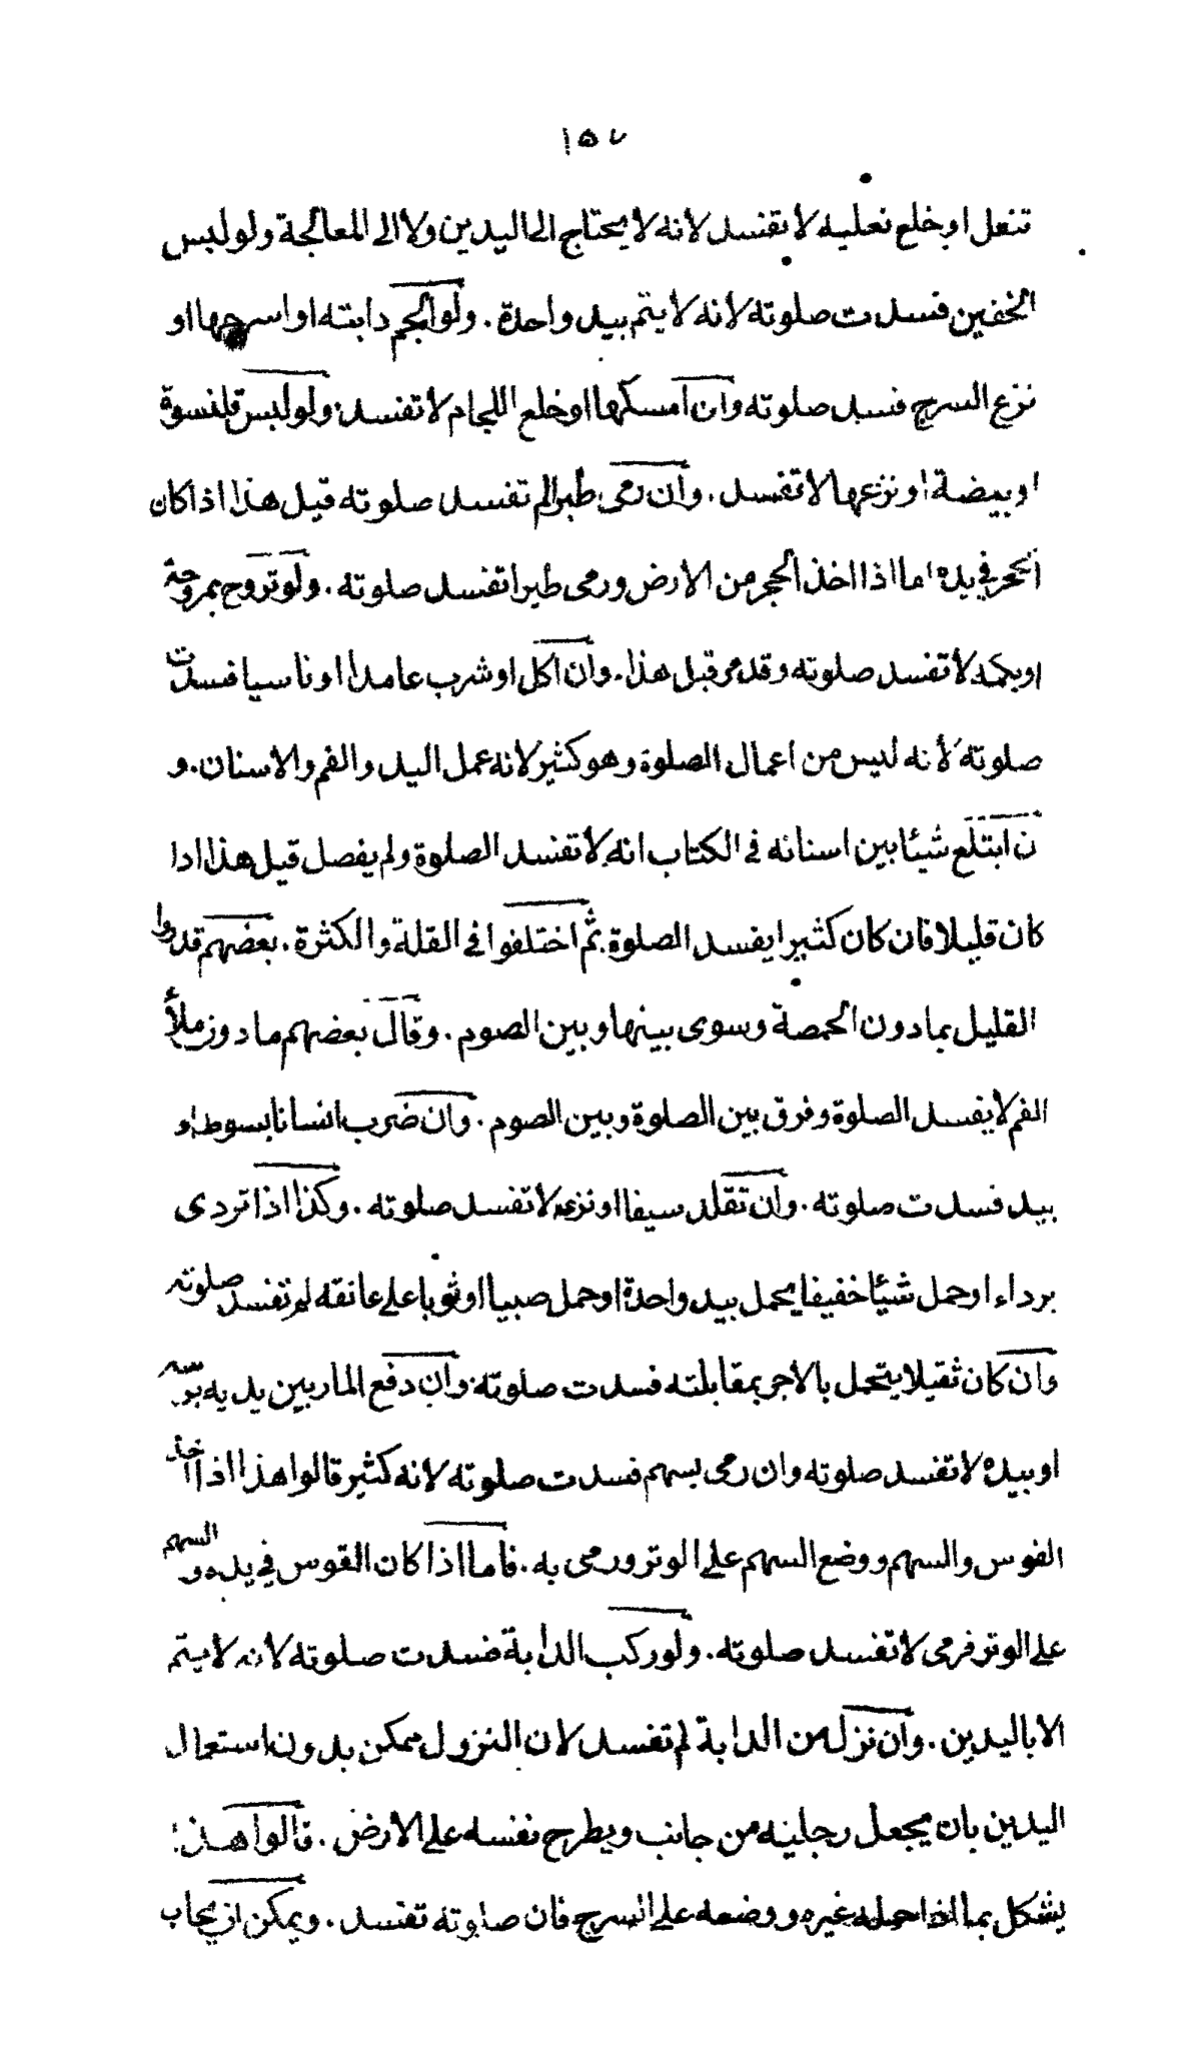 ١٥٧
تنعل او خلع نعليه لا تفسد لانه لا يحتاج الى اليدين ولا الى المعالجة ولو لبس
الخفين فسدت صلوته لانه لا يتم بيد واحدة. ولو الجم دابته او اسرجها او
نزع السرج فسد صلوته وان امسكها او خلع اللجام لا تفسد. ولو لبس قلنسوة
او بيضة او نزعها لا تفسد. وان رمى طيرا لم تفسد صلوته قيل هذا اذا كان
الحجر في يده اما اذا اخذ الحجر من الارض ورمى طيرا تفسد صلوته. ولو تروح بمروحة
او بكمه لا تفسد صلوته وقد مر قبل هذا. وان اكل او شرب عامدا او ناسيا فسدت
صلوته لانه ليس من اعمال الصلوة وهو كثير لانه عمل اليد والفم والاسنان. و
ن ابتلع شيئا بين اسنانه في الكتاب انه لا تفسد الصلوة ولم يفصل قيل هذا اذا
كان قليلا فان كان كثيرا يفسد الصلوة. ثم اختلفوا في القلة والكثرة. بعضهم قدروا
القليل بما دون الحمصة وسوى بينها وبين الصوم. وقال بعضهم ما دون ملأ
الفم لا يفسد الصلوة وفرق بين الصلوة وبين الصوم. وان ضرب انسانا بسوط او
بيد فسدت صلوته. وان تقلد سيفا او نزعه لا تفسد صلوته. وكذا اذا تردى
برداء او حمل شيئا خفيفا يحمل بيد واحدة او حمل صبيا او ثوبا على عاتقه لم تفسد صلوته
وان كان ثقيلا يتحمل بالاجر بمقابلته فسدت صلوته. وان دفع المار بين يديه برأسه
او بيده لا تفسد صلوته وان رمى بسهم فسدت صلوته لانه كثير قالوا هذا اذا اخذ
القوس والسهم ووضع السهم على الوتر ورمى به. فاما اذا كان القوس في يده والسهم
على الوتر فرمى لا تفسد صلوته. ولو ركب الدابة فسدت صلوته لانه لا يتم
الا باليدين. وان نزل من الدابة لم تفسد لان النزول ممكن بدون استعمال
اليدين بان يجعل رجليه من جانب ويطرح نفسه على الارض. قالوا هذا
يشكل بما اذا حمله غيره ووضعه على السرج فان صلوته تفسد. ويمكن ان يجاب